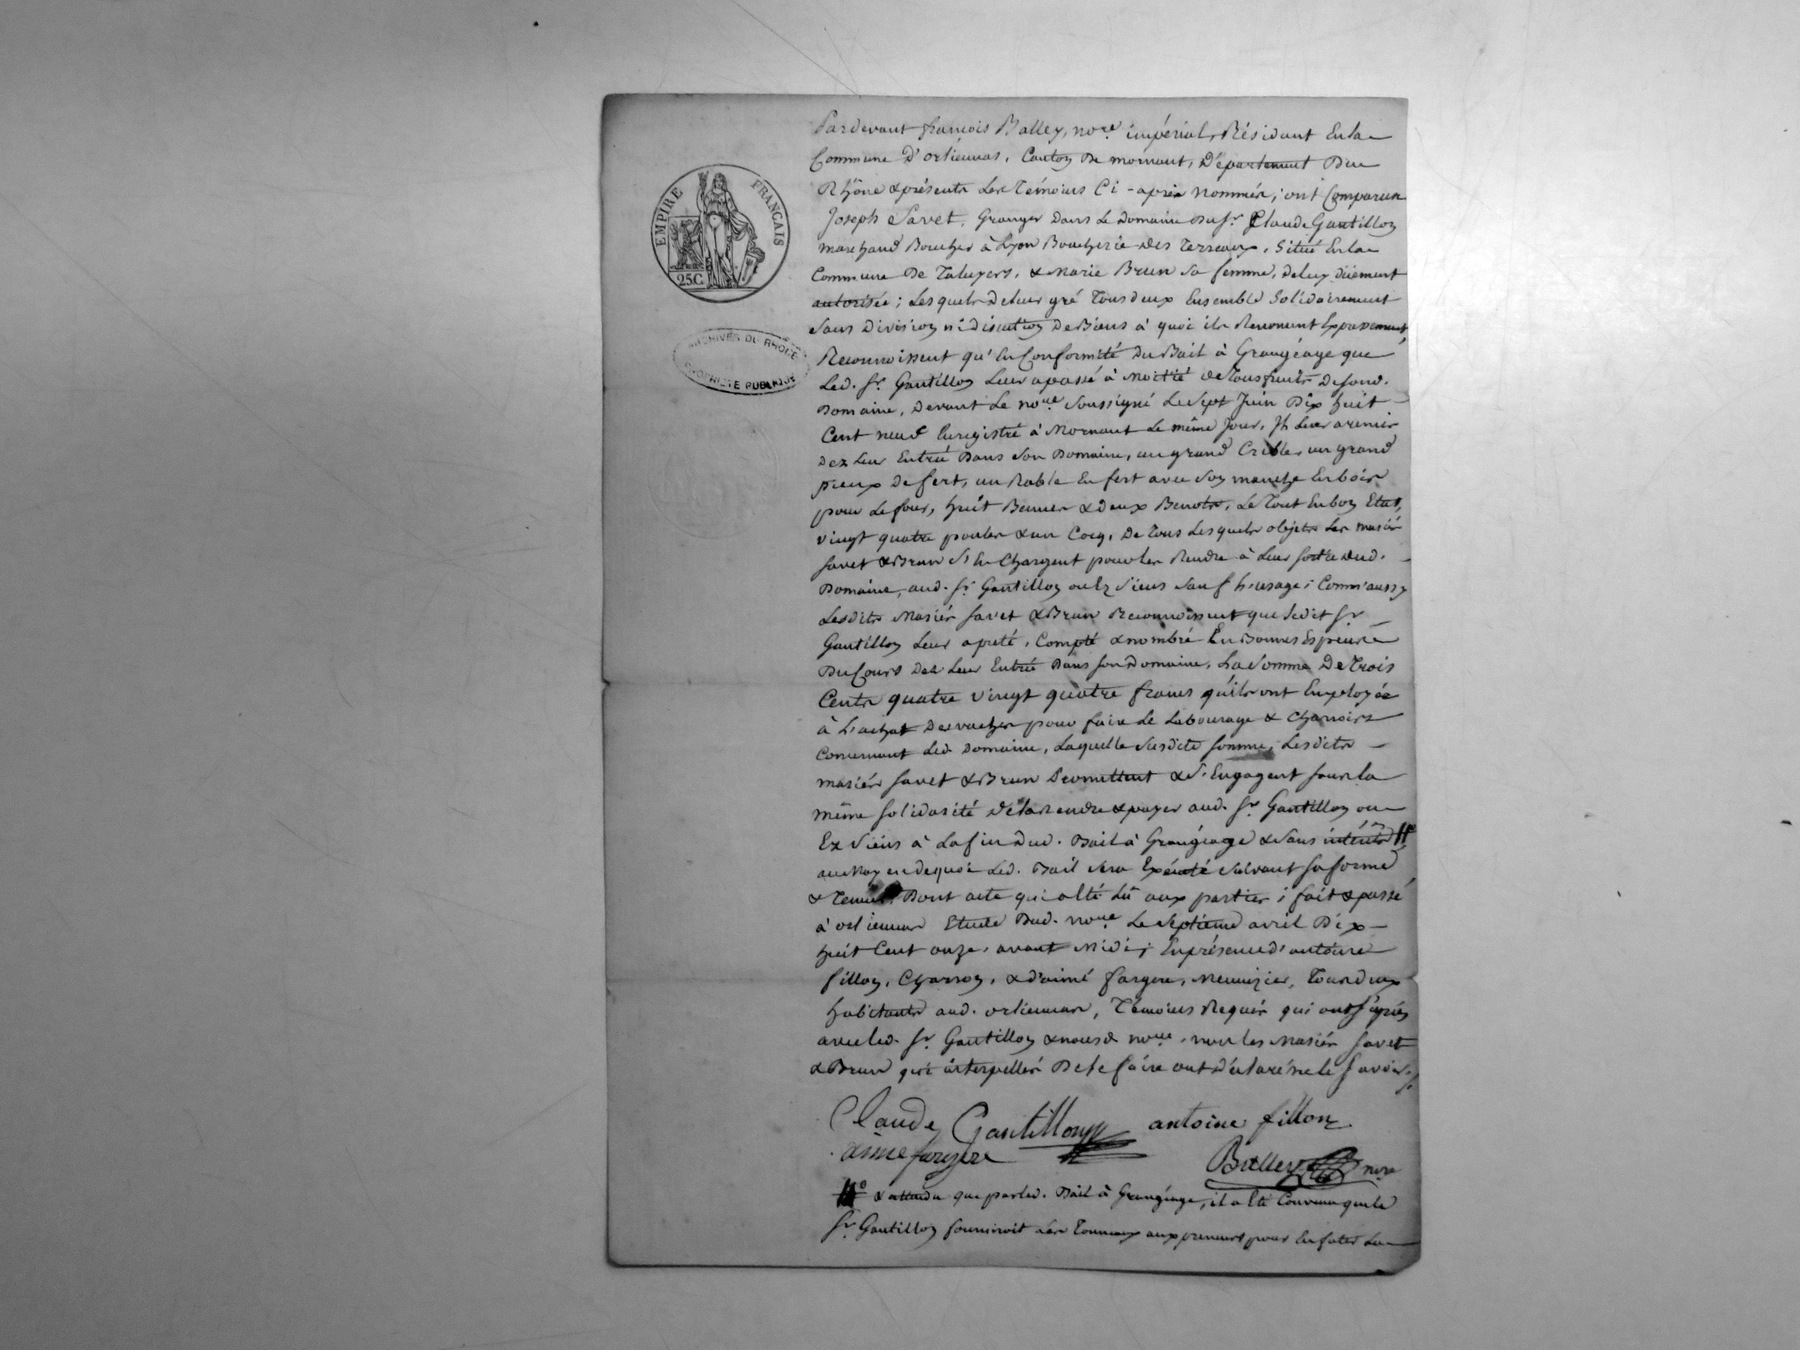 EMPIRE FRANÇAIS
25C
ARCHIVES DU RHÔNE
PROPRIÉTÉ PUBLIQUE
Pardevant françois Balley, no.re impérial, Résidant En la
Commune D'orliénas, Canton De mornant, Département Du
Rhône & présents Les Témoins Ci-après Nommés; ont Comparus
Joseph Savet, Granger Dans Le Domaine du Sr. Claude Gantillon
marchand Boucher à Lyon Boucherie des Terreaux, Situé En la
Commune De Taluyers, & Marie Brun Sa femme, de luy düement
autorisée; Lesquels de leur gré Tous deux Ensemble Solidairement
Sans Division ni discution De Biens à quoi ils Renoncent Expressement
Reconnoissent qu'En Conformité Du Bail à Grangéage que
Led. Sr. Gantillon Leur a passé à Moitié de Tous fruits De son d.
Domaine, Devant Le no.re Soussigné Le Sept Juin Dix huit
Cent neuf Enregistré à Mornant Le même Jour, Il Leur a remis
Dez Leur Entrée Dans Son Domaine, un grand Crible, un grand
pieux De fert, un Rable En fert avec Son manche En bois
pour Le four, huit Bennes & deux Benots, Le Tout En bon Etat,
vingt quatre poules & un Coq, De Tous Lesquels objets Les mariés
Savet & Brun S'En Chargent pour les Rendre à Leur Sortie dud.
Domaine, aud. Sr. Gantillon ou Ez Siens Sauf L'usage; Comm'aussy
Lesdits Mariés Savet & Brun Reconnoissent que Ledit Sr.
Gantillon Leur a preté, Compté & nombré En Bonnes Espèces
Du Cours Dez Leur Entrée Dans Son Domaine, La Somme De Trois
Cents quatre vingt quatre francs qu'ils ont Employée
à L'achat Des vaches pour faire Le Labourage & Charrois
Concernant Led. Domaine, Laquelle Susdite Somme, Lesdits
mariés Savet & Brun Promettent & S'Engagent Sous la
même Solidarité De la Rendre & payer aud. Sr. Gantillon ou
Ez Siens à La fin Dud. Bail à Grangéage & Sans intérêts
au Moyen de quoi Led. Bail Sera Exécuté Suivant Sa forme
& Teneur. Dont acte qui a Eté Lû aux parties; fait & passé
à orliennas Etude Dud. no.re Le Septième avril Dix
huit Cent onze, avant Midi; En présence d'antoine
fillon, Charron, & d'aimé fargere, Menuizier, Tous deux
habitants aud. orliennas, Témoins Requis qui ont Signés
avec led. Sr. Gantillon & nousd. no.re, non les Mariés Savet
& Brun qui interpellés De le faire ont déclaré ne le Savoir.
Claude Gantillon antoine fillon
aimé fargere
Balley no.re
& attendu que par led. Bail à Grangéage, il a Eté Convenu que le
Sr. Gantillon fourniroit Les Tonneaux aux preneurs pour